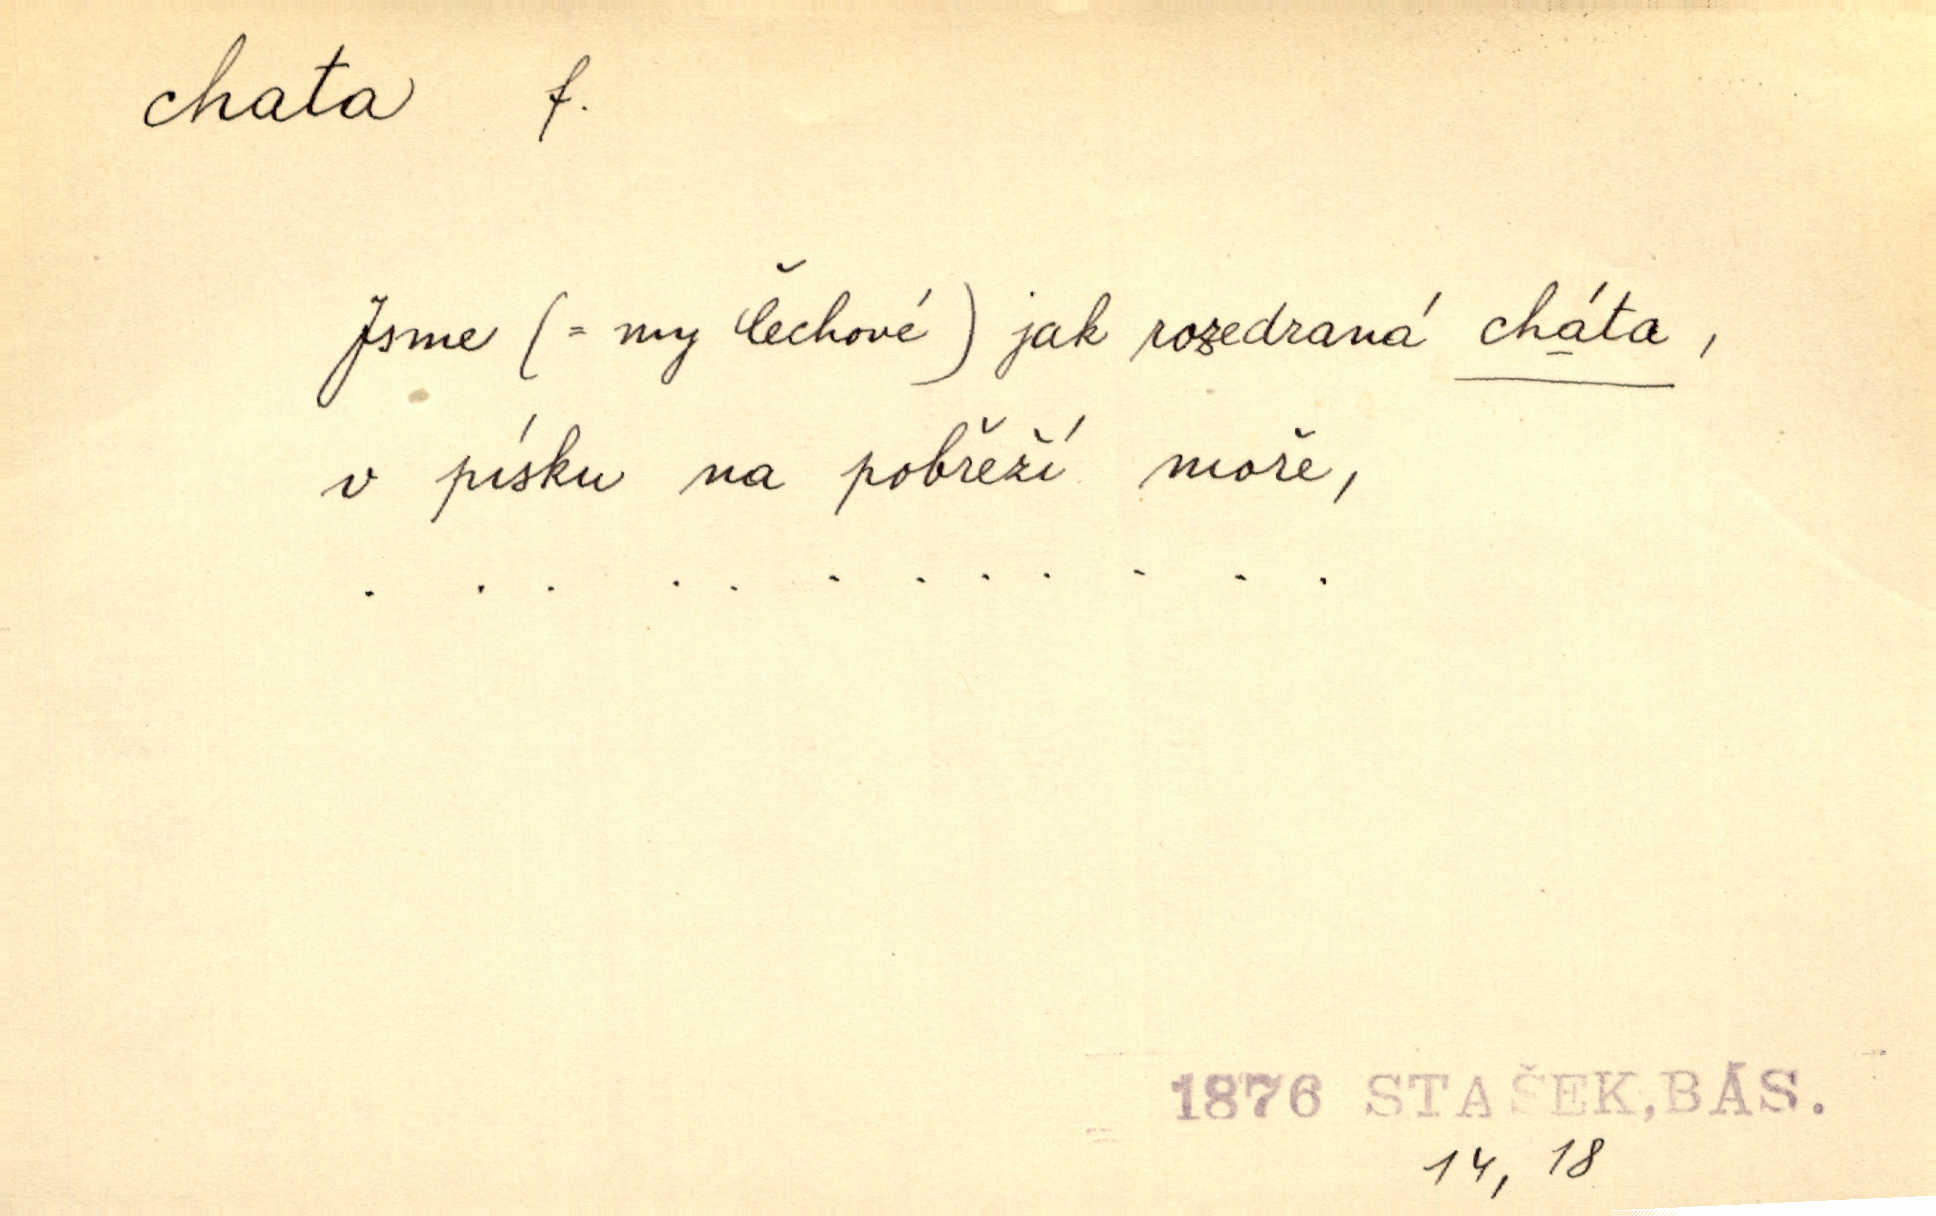 chata f.
Jsme (= my Čechové) jak rozedraná cháta,
v písku na pobřeží moře,
. . . . . . . . . . . .
1876 STAŠEK, BÁS.
14, 18